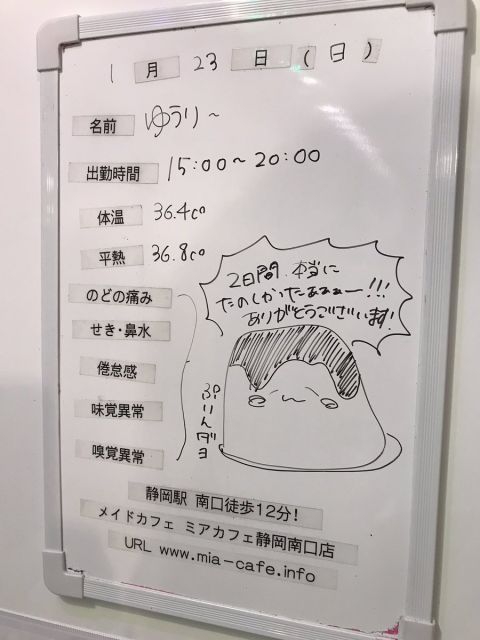 1 月 23 日 ( 日 )
名前 ゆうり~
出勤時間 15:00~20:00
体温 36.4c°
平熱 36.8c°
のどの痛み
せき・鼻水
倦怠感
味覚異常
嗅覚異常
2日間、本当に
たのしかったぁぁぁー!!!
ありがとうございます!
ぷりんダヨ
静岡駅 南口徒歩12分!
メイドカフェ ミアカフェ静岡南口店
URL www.mia-cafe.info